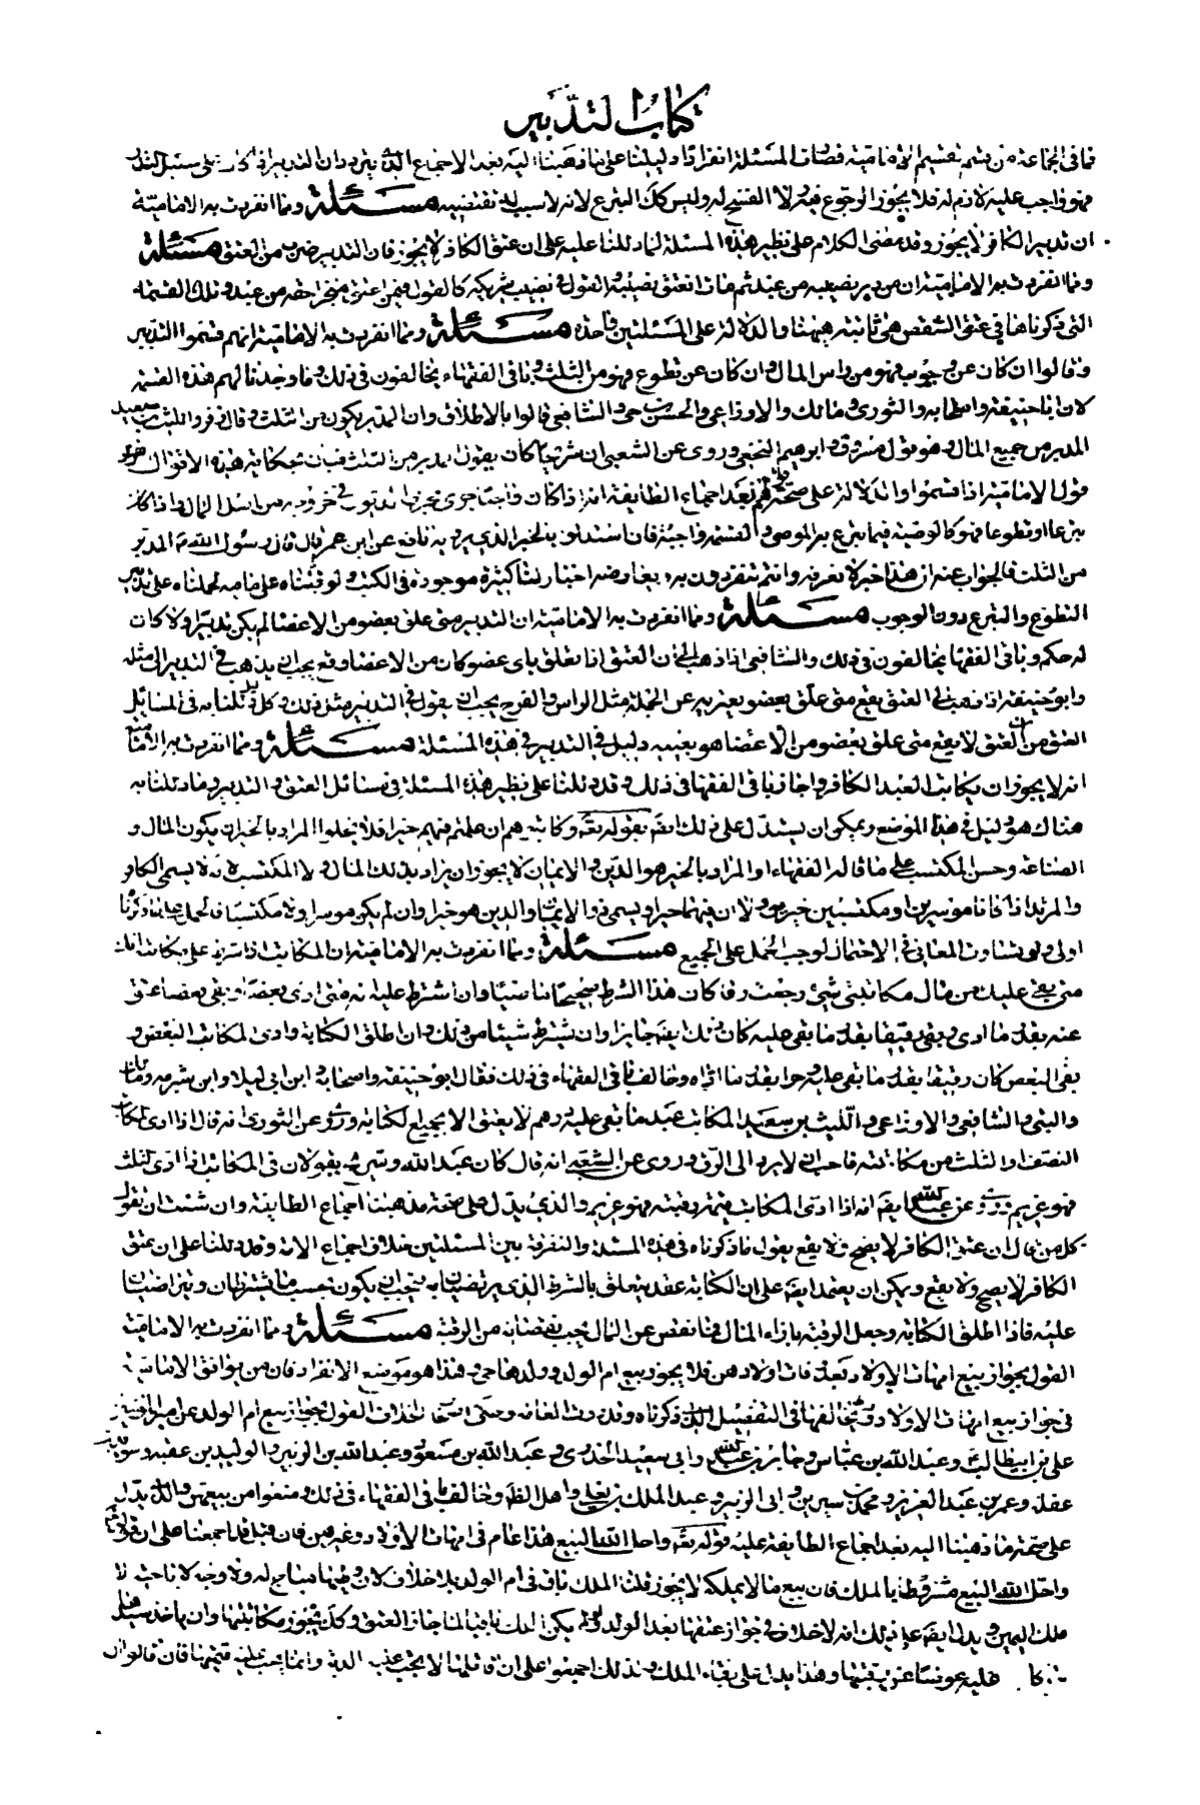 كتاب التدبير
فما في الجماعة من قسم تقسيم الإمامية فصارت المسئلة انفرادا دليلنا على ما ذهبنا إليه بعد الاجماع الذي يتردد ان التدبير اذا كان على سبيل النذر
فهو واجب عليه لازم له فلا يجوز الرجوع فيه ولا الفسخ له وليس كك التبرع لانه لا سبب له يقتضيه مسئلة ومما انفردت به الامامية
ان تدبير الكافر لا يجوز وقد مضى الكلام على نظير هذه المسئلة لما دللنا عليه على ان عتق الكافر لا يجوز فان التدبير ضرب من العتق مسئلة
ومما انفردت به الامامية ان من دبر نصيبه من عبد ثم مات انعتق نصيبه والقول في نصيب شريكه كالقول فيمن اعتق منجزا حقه من عبد وتلك القسمة
التي ذكرناها في عتق الشقص هي ثابتة هيهنا والدلالة على المسئلتين واحدة مسئلة ومما انفردت به الامامية انهم قسموا التدبير
وقالوا ان كان عن وجوب فهو من راس المال وان كان عن تطوع فهو من الثلث وباقي الفقهاء يخالفون في ذلك وما وجدنا لهم هذه القسمة
لان ابا حنيفة واصحابه والثوري ومالك والاوزاعي والحسن بن حي والشافعي قالوا بالاطلاق وان المدبر يكون من الثلث وقال زفر والليث بن سعيد
المدبر من جميع المال وهو قول مسروق وابرهيم النخعي وروي عن الشعبي ان شريحا كان يقول المدبر من الثلث فبان بحكاية هذه الاقوال
قول الامامية اذا قسموا والدلالة على صحة قولهم بعد اجماع الطائفة انه اذا كان واجبا جرى مجرى الديون في خروجه من اصل المال واذا كان
تبرعا او تطوعا فهو كالوصية فيما يتبرع به الموصي والقسمة واجبة فان استدلوا بالخبر الذي يرويه نافع عن ابن عمر قال قال رسول الله المدبر
من الثلث فالجواب عنه ان هذا خبر لا نعرفه وانتم تنفردون به ويعارضه اخبار لنا كثيرة موجودة في الكتب ولو قبلناه على ما به لحملناه على تدبير
التطوع والتبرع دون الوجوب مسئلة ومما انفردت به الامامية ان التدبير متى علق بعضو من الاعضا لم يكن تدبيرا ولا كان
له حكم وباقي الفقها يخالفون في ذلك والشافعي اذا ذهب الى ان العتق اذا تعلق باي عضو كان من الاعضا وقع يجب ان يذهب في التدبير الى مثله
وابو حنيفة اذا ذهب الى العتق يقع متى علق بعضو يعبر به عن الجملة مثل الراس والفرج يجب ان يقول في التدبير مثل ذلك وكل ما دللنا به في المسائل
العتق من ان العتق لا يقع متى علق بعضو من الاعضا هو بعينه دليل في التدبير في هذه المسئلة مسئلة ومما انفردت به الامامية
انه لا يجوز ان يكاتب العبد الكافر واجاز باقي الفقها في ذلك وقد دللنا على نظير هذه المسئلة في مسائل العتق والتدبير وما دللنا به
هناك هو دليل في هذا الموضع ويمكن ان يستدل على ذلك ايضا بقوله تعالى وكاتبوهم ان علمتم فيهم خيرا فلا يخلوا المراد بالخير ان يكون المال و
الصناعة وحسن المكتسب على ما قاله الفقهاء او المراد بالخير هو الدين والايمان لا يجوز ان يراد بذلك المال ولا المكتسب لانه لا يسمى الكافر
والمرتد اذا كانا موسرين او مكتسبين خيرين ولا ان فيهما خيرا ويسمى ذو الايمان والدين هو خيرا وان لم يكن موسرا ولا مكتسبا فالحمل على ما ذكرنا
اولى ولو تساوت المعاني في الاحتمال لوجب الحمل على الجميع مسئلة ومما انفردت به الامامية ان المكاتب اذا شرط على مكاتبه انك
متى بقي عليك من مال مكاتبتي شيئ رجعت رقا كان هذا الشرط صحيحا ماضيا وان اشترط عليه انه متى ادى بعضه وبقي بعضا عتق
عنه بقدر ما ادى وبقي رقيقا بقدر ما بقي عليه كان ذلك ايضا جايزا وان لم يشترط شيئا من ذلك وان اطلق الكتابة وادى المكاتب البعض و
بقي البعض كان رقيقا بقدر ما بقي عليه وحرا بقدر ما اداه وخالف باقي الفقهاء في ذلك فقال ابو حنيفة واصحابه وابن ابي ليلا وابن شبرمه ومالك
والبتي والشافعي والاوزاعي والليث بن سعيد المكاتب عبد ما بقي عليه درهم لا يعتق الا بجميع الكتابة وروي عن الثوري انه قال اذا ادى المكاتب
النصف او الثلث من مكاتبته فاحب ان لا يرد الى الرق وروي عن الشعبي انه قال كان عبد الله وشريح يقولان في المكاتب اذا ادى الثلث
فهو غريم وروي عن عبد الله ايضا انه اذا ادى المكاتب قيمة رقبته فهو غريم والذي يدل على صحة مذهبنا اجماع الطايفة وان شئت ان تقول
كل من قال ان عتق الكافر لا يصح ولا يقع يقول ما ذكرناه في هذه المسئلة والتفرقة بين المسئلتين خلاف اجماع الامة وقد دللنا على ان عتق
الكافر لا يصح ولا يقع ويمكن ان يعتمد ايضا على ان الكتابة عقد يتعلق بالشرط الذي يرتضيان به فيجب ان يكون بحسب ما يشترطان ويتراضيان
عليه فاذا اطلق الكتابة وجعل الرقبة بازاء المال فما نقص عن المال يجب نقصانه من الرقبة مسئلة ومما انفردت به الامامية
القول بجواز بيع امهات الاولاد بعد وفات اولادهن فلا يجوز بيع ام الولد وولدها حي وهذا هو موضع الانفراد فان من يوافق الامامية
في جواز بيع امهات الاولاد يخالفها في التفصيل الذي ذكرناه وقد روت العامة وحكى اصحاب الخلاف القول بجواز بيع ام الولد عن امير المؤمنين
علي بن ابيطالب وعبد الله بن عباس وجابر بن عبد الله وابي سعيد الخدري وعبد الله بن مسعود وعبد الله بن الزبير والوليد بن عقبه وسويد بن
غفلة وعمر بن عبد العزيز ومحمد بن سيرين وابي الزبير وعبد الملك بن يعلى واهل الظاهر وخالف باقي الفقهاء في ذلك ومنعوا من بيعهن والذي يدل
على صحة ما ذهبنا اليه بعد اجماع الطايفة عليه قوله تعالى واحل الله البيع هذا عام في امهات الاولاد وغيرهن فان قيل قد اجمعنا على ان قوله
واحل الله البيع مشروط بالملك فان بيع ما لا يملكه لا يجوز قلنا الملك باق في ام الولد بلا خلاف لان وطيها مباح له ولا وجه لاباحته الا
ملك اليمين ويدل ايضا على ذلك انه لا خلاف في جواز عتقها بعد الولد ولو لم يكن الملك باقيا لما جاز العتق وكذا يجوز مكاتبتها وان ياخذ سيدها
ما كا عليه عوضا عن رقبتها وهذا يدل على بقاء الملك وكذلك اجمعوا على ان قاتلها لا يجب عليه الدية وانما يجب عليه قيمتها فان قالوا